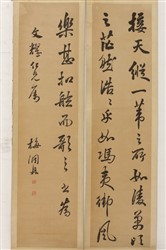 接天縱一葦之所如凌萬頃
之茫然浩浩乎如馮虛御風
樂甚扣舷而歌之書為
仁兄屬
梅調鼎